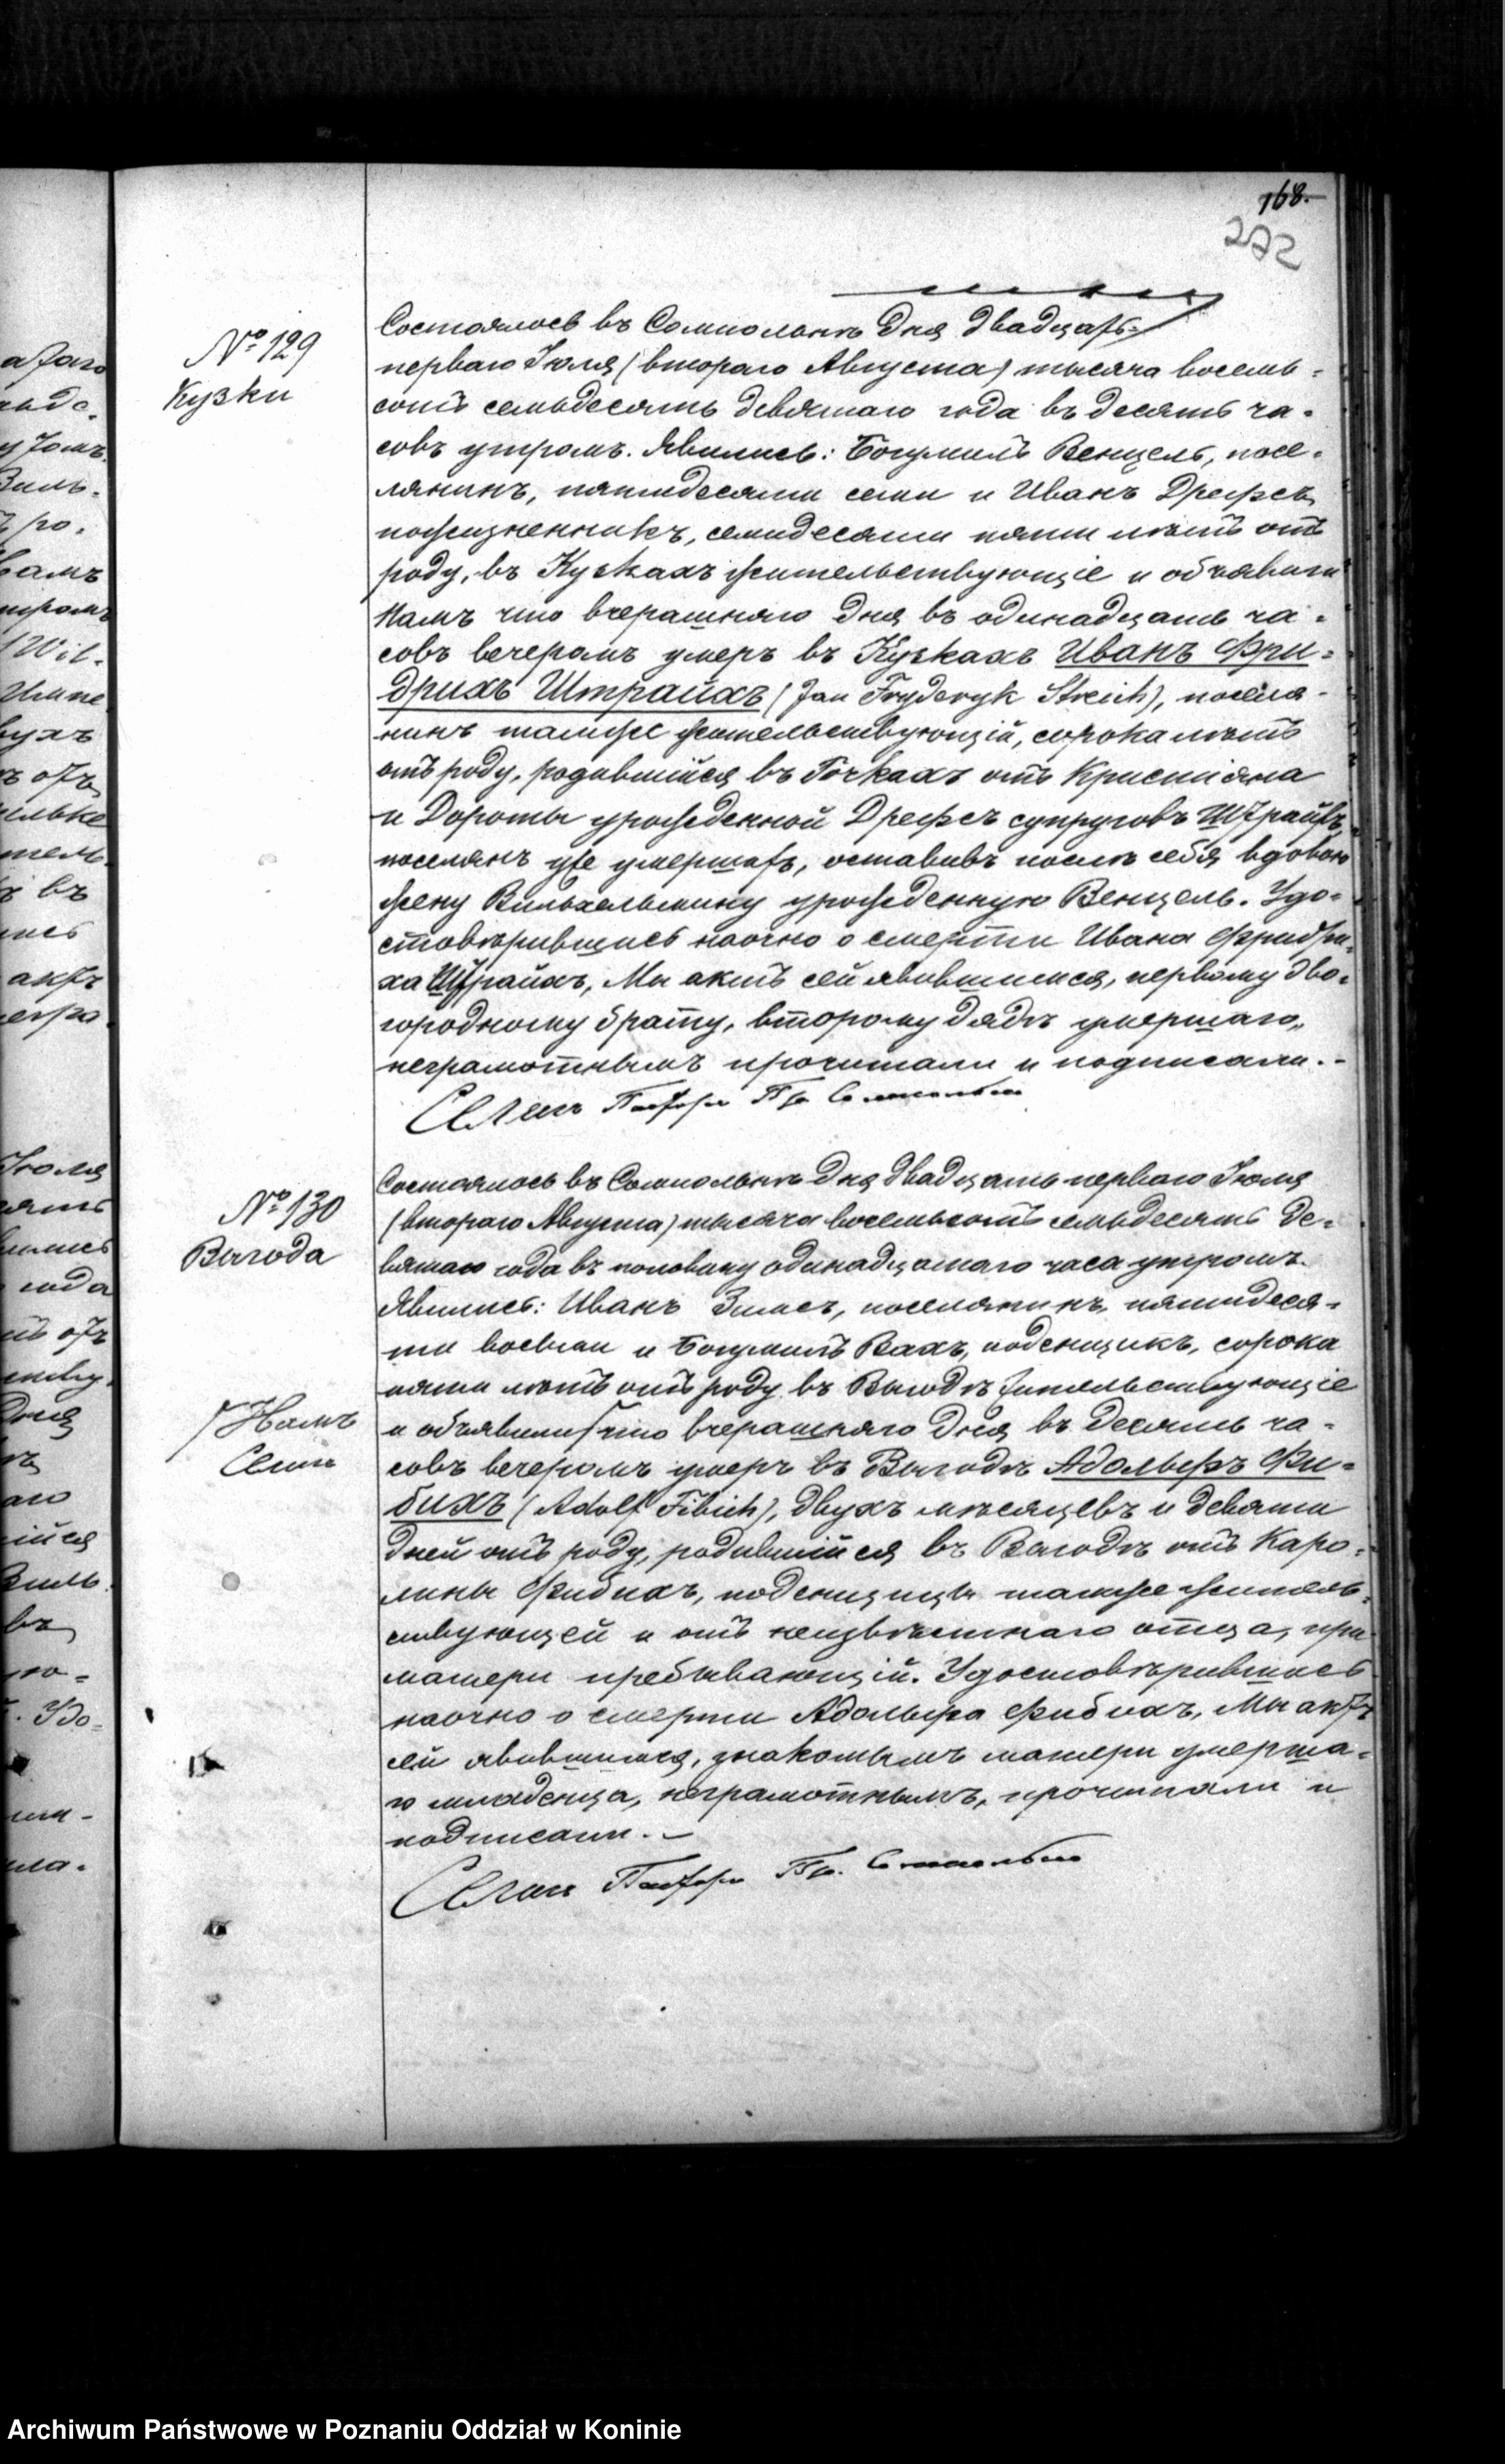 168.
272
№ 129
Кузки
Состоялось въ Сомпольнѣ дня двадцать
перваго Іюля (втораго Августа) тысяча восемь-
сотъ семьдесятъ девятаго года въ десять ча-
совъ утромъ. Явились: Богумилъ Венцель, посе-
лянинъ, пятидесяти семи и Иванъ Дрефсъ
пожизненникъ, семидесяти пяти лѣтъ отъ
роду, въ Кузкахъ жительствующіе и объявили
Намъ что вчерашняго дня въ одинадцать ча-
совъ вечеромъ умеръ въ Кузкахъ Иванъ Фри-
дрихъ Штрайхъ (Jan Fryderyk Streich), поселя-
нинъ тамже жительствующій, сорока лѣтъ
отъ роду, родившійся въ Гочкахъ отъ Кристіяна
и Дороты урожденной Дрефсъ супруговъ Штрайхъ,
поселянъ уже умершихъ, оставивъ послѣ себя вдовою
жену Вильхельмину урожденную Венцель. Удо-
стовѣрившись наочно о смерти Ивана Фридри-
ха Штрайхъ, Мы актъ сей явившимся, первому дво-
городному брату, второму дядѣ умершаго,
неграмотнымъ прочитали и подписали. -
Пасторъ Пр.
№ 130
Выгода
Состоялось въ Сомпольнѣ дня двадцать перваго Іюля
(втораго Августа) тысяча восемьсотъ семьдесятъ де-
вятаго года въ половину одинадцатаго часа утромъ.
Явились: Иванъ Зимсъ, поселянинъ, пятидеся-
ти восьми и Богумилъ Вахъ, поденщикъ, сорока
пяти лѣтъ отъ роду въ Выгодѣ жительствующіе
и объявили что вчерашняго дня въ десять ча-
Намъ
совъ вечеромъ умеръ въ Выгодѣ Адольфъ Фи-
бихъ (Adolf Fibich), двухъ мѣсяцевъ и девяти
дней отъ роду, родившійся въ Выгодѣ отъ Каро-
лины Фибихъ, поденщицы тамже житель-
ствующей и отъ неизвѣстнаго отца, при
матери пребывающій. Удостовѣрившись
наочно о смерти Адольфа Фибихъ, Мы актъ
сей явившимся, знакомымъ матери умерша-
го младенца, неграмотнымъ, прочитали и
подписали. -
Пасторъ Пр.
Archiwum Państwowe w Poznaniu Oddział w Koninie